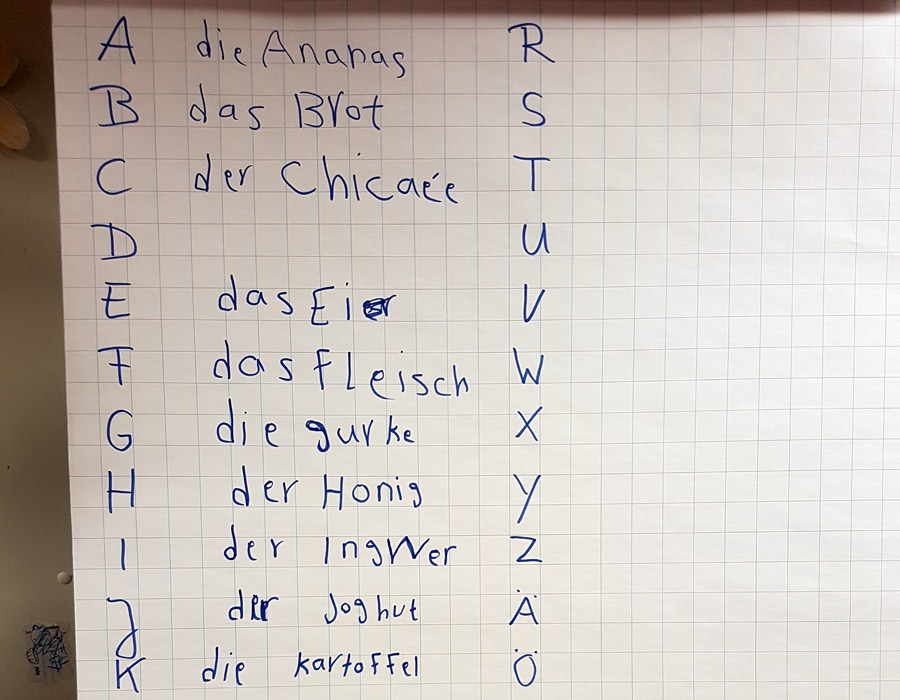 A die Ananas
B das Brot
C der Chicaée
D
E das Eier
F das Fleisch
G die gurke
H der Honig
I der IngWer
J der Joghut
K die kartoffel
R
S
T
U
V
W
X
Y
Z
Ä
Ö